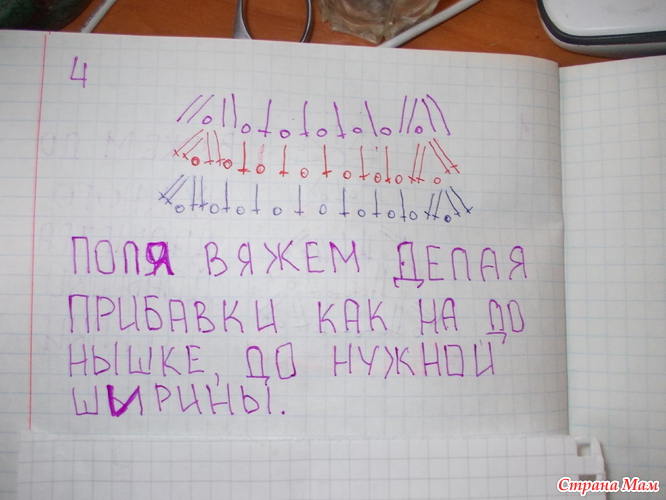 4
ПОЛЯ ВЯЖЕМ ДЕЛАЯ
ПРИБАВКИ КАК НА ДО
НЫШКЕ, ДО НУЖНОЙ
ШЫРИНЫ.
Страна Мам